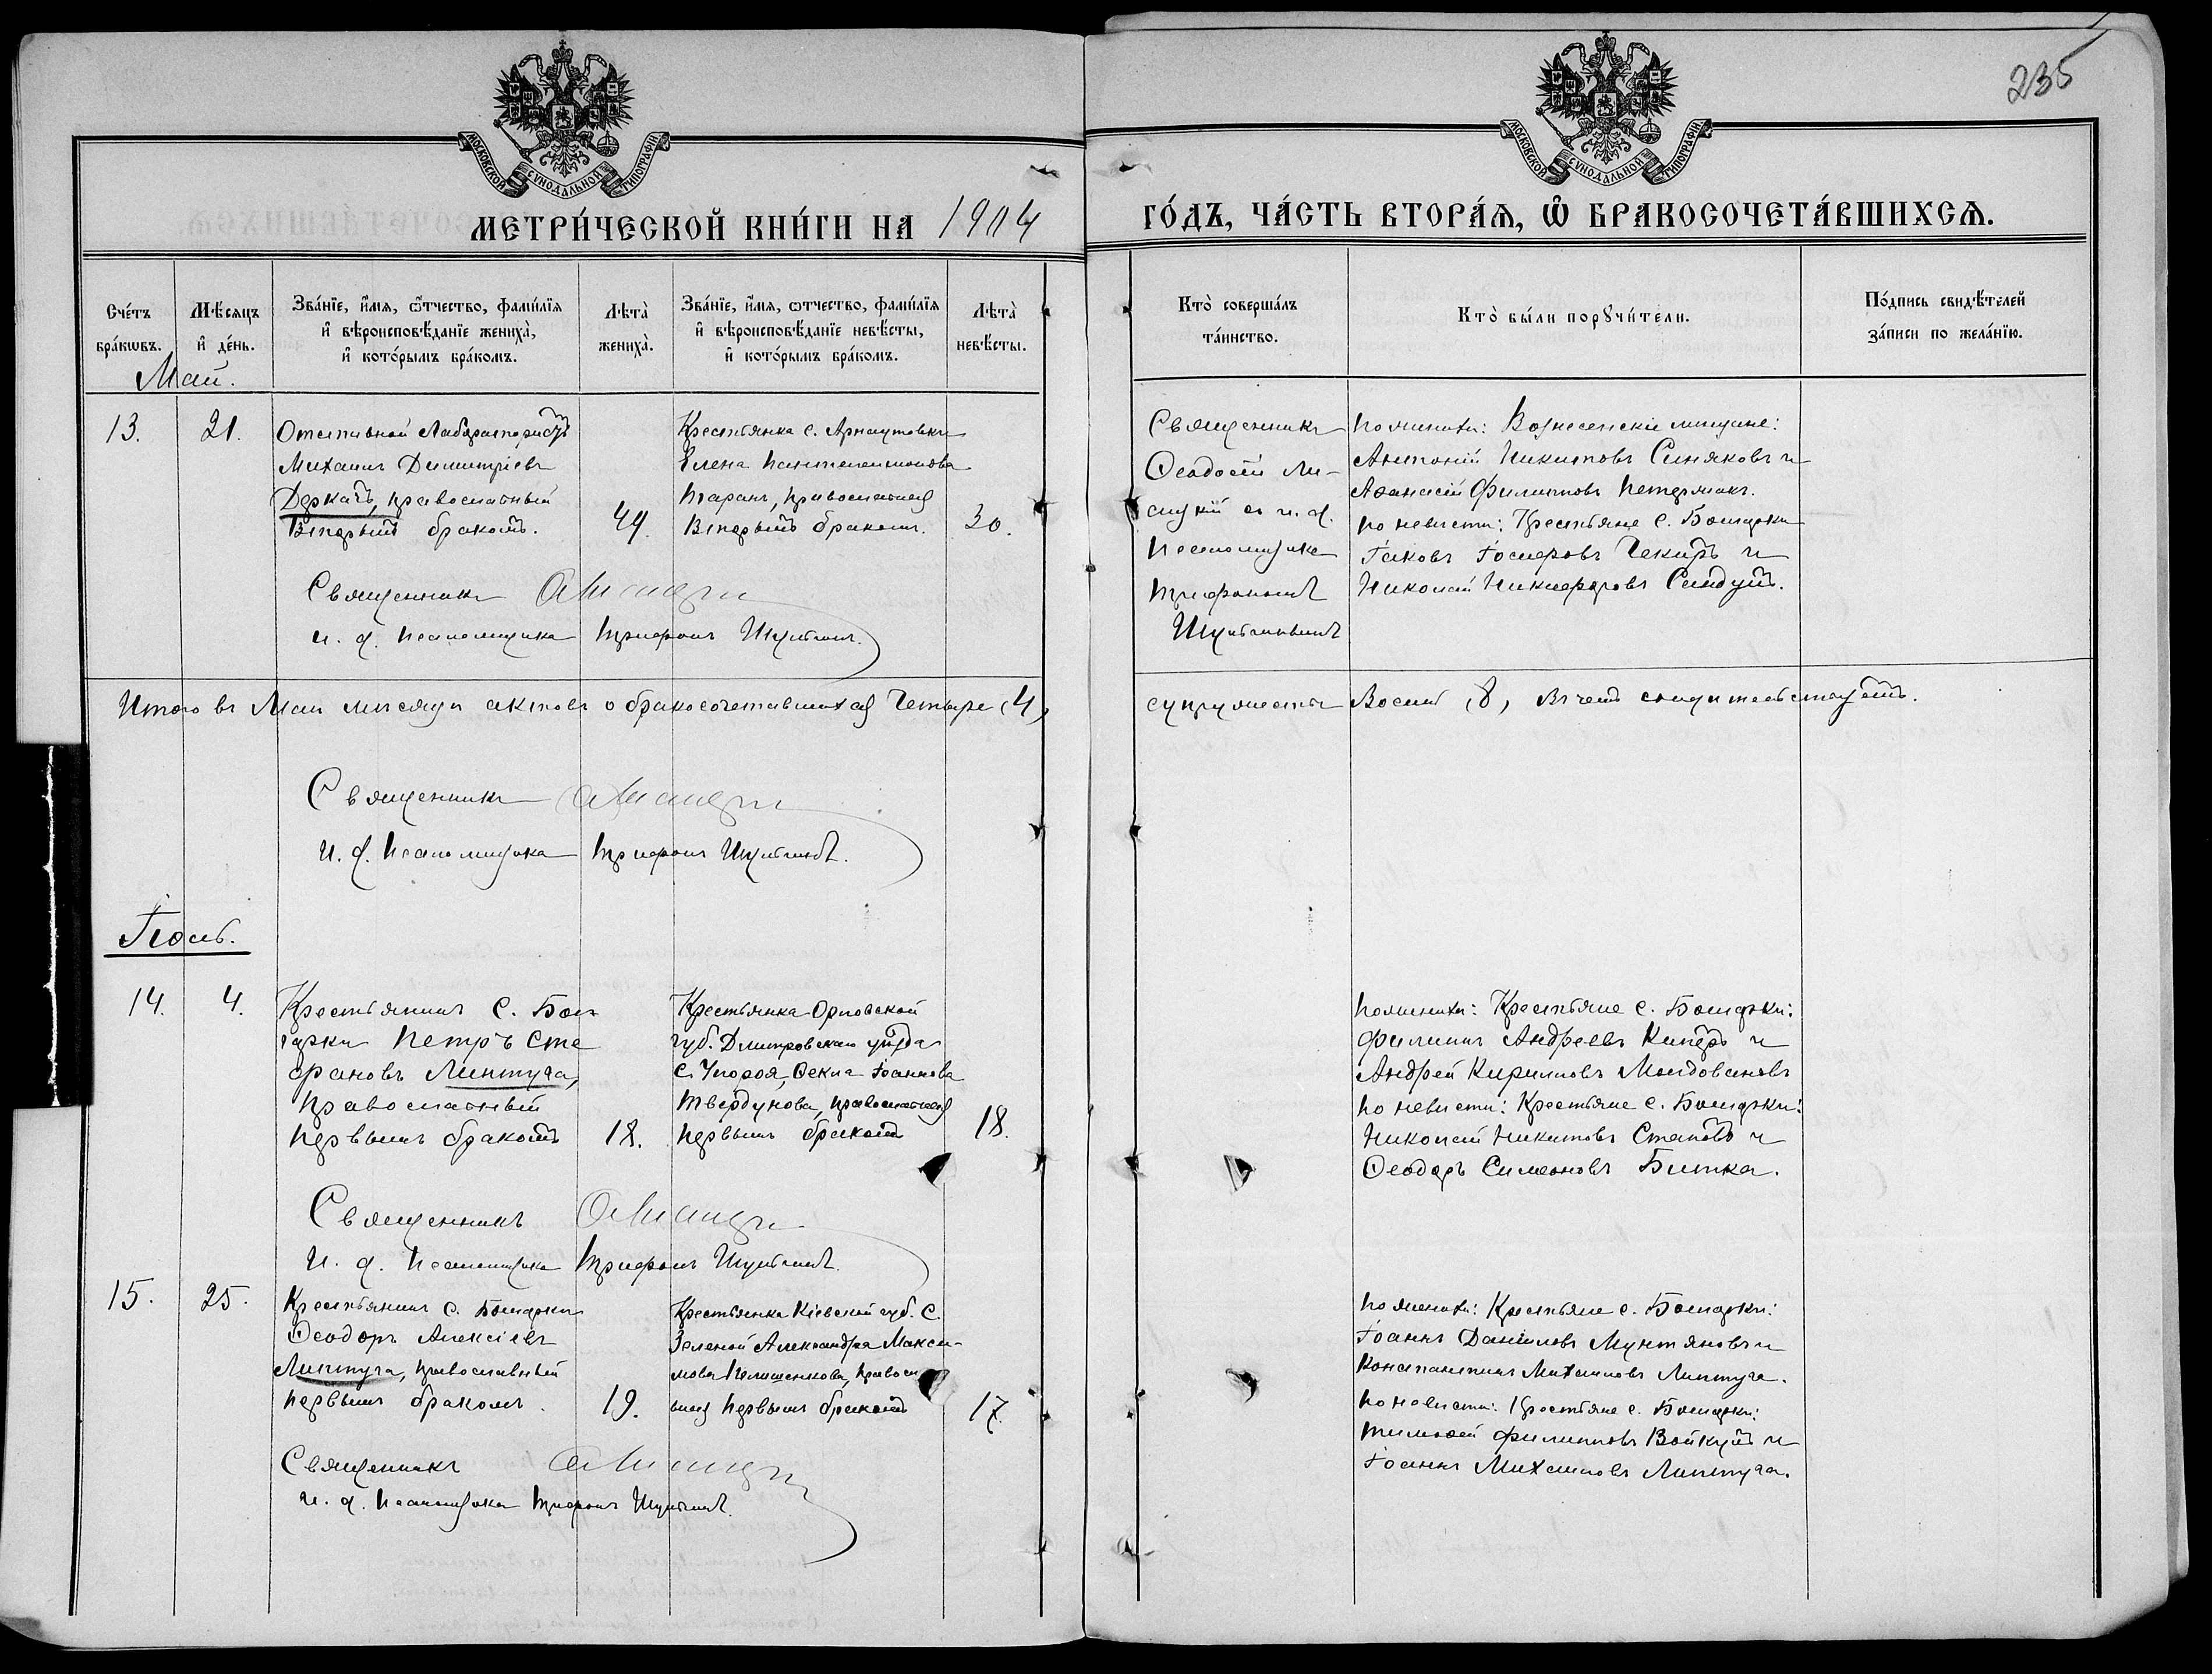 235
МОСКОВСКОЙ СѴНОДАЛЬНОЙ ТИПОГРАФІИ
МОСКОВСКОЙ СѴНОДАЛЬНОЙ ТИПОГРАФІИ
МЕТРИ́ЧЕСКОЙ КНИ́ГИ НА 1904
ГО́ДЪ, ЧА́СТЬ ВТОРА́Ѧ, Ѽ БРАКОСОЧЕТА́ВШИХСѦ.
Сче́тъ
бра́кѡвъ.
Мѣ́сяцъ
и҆ де́нь.
Зва́нїе, и҆́мѧ, ѻ҆́тчество, фами́лїѧ
и҆ вѣроисповѣ́данїе жениха̀,
и҆ кото́рымъ бра́комъ.
Лѣта̀
жениха̀.
Зва́нїе, и҆́мѧ, ѻтчество, фами́лїѧ
и҆ вѣроисповѣ́данїе невѣ́сты,
и҆ кото́рымъ бра́комъ.
Лѣта̀
невѣ́сты.
Кто̀ соверша́лъ
та́инство.
Кто̀ бы́ли порꙋчи́тели.
По́дпись свидѣ́телей
за́писи по жела́нїю.
Май.
13.
21.
Отставной
Михаилъ Димитріевъ
Деркачъ, православный
Вторымъ бракомъ.
44.
Крестьянка с. Арнаутовки
Елена Пантелеимонова
Таранъ, православная
Вторымъ бракомъ.
30.
Священникъ
Ѳеодосій Ли-
сицкій съ и. д.
Псаломщика
Трифономъ
По женихѣ: Вознесенскіе мѣщане:
Антоній Никитовъ Синяковъ и
Аѳанасій Филипповъ Петермакъ.
по невѣстѣ: Крестьяне с. Болгарки
Іаковъ Іосифовъ Чекиръ и
Николай Никифоровъ
Священникъ
и. д. Псаломщика Трифонъ
Итого въ Маѣ мѣсяцѣ актовъ о бракосочетавшихся Четыре (4)
супружествъ Восемь (8) въ чемъ свидѣтельствуемъ.
Священникъ
И. д. Псаломщика Трифонъ
Іюнь.
14.
4.
Крестьянинъ с. Бол-
гарки Петръ Сте
фановъ Липтуга,
православный
первымъ бракомъ
18.
Крестьянка Орловской
губ. Дмитровскаго уѣзда
с. Упороя, Ѳекла Іоаннова
Твердунова, православная
первымъ бракомъ
18.
По женихѣ: Крестьяне с. Болгарки:
Филиппъ Андреевъ Киперъ и
Андрей Кирилловъ Молдовановъ
по невѣстѣ: Крестьяне с. Болгарки:
Николай Никитовъ Статовъ и
Ѳеодоръ Симеоновъ Битка.
Священникъ
И. д. Псаломщика Трифонъ
15.
25.
Крестьянинъ с. Болгарки
Ѳеодоръ Алексіевъ
Липтуга, православный
первымъ бракомъ.
19.
Крестьянка Кіевской губ. с.
Зеленой Александра Макси-
мова Пелишенкова, правосл
вная первымъ бракомъ
17.
По женихѣ: Крестьяне с. Болгарки:
Іоаннъ Даніиловъ Мунтяновъ и
Константинъ Михаиловъ Липтуга.
по невѣстѣ: Крестьяне с. Болгарки:
Тимоѳей Филипповъ Войкулъ и
Іоаннъ Михаиловъ Липтуга.
Священникъ
и. д. Псаломщика Трифонъ